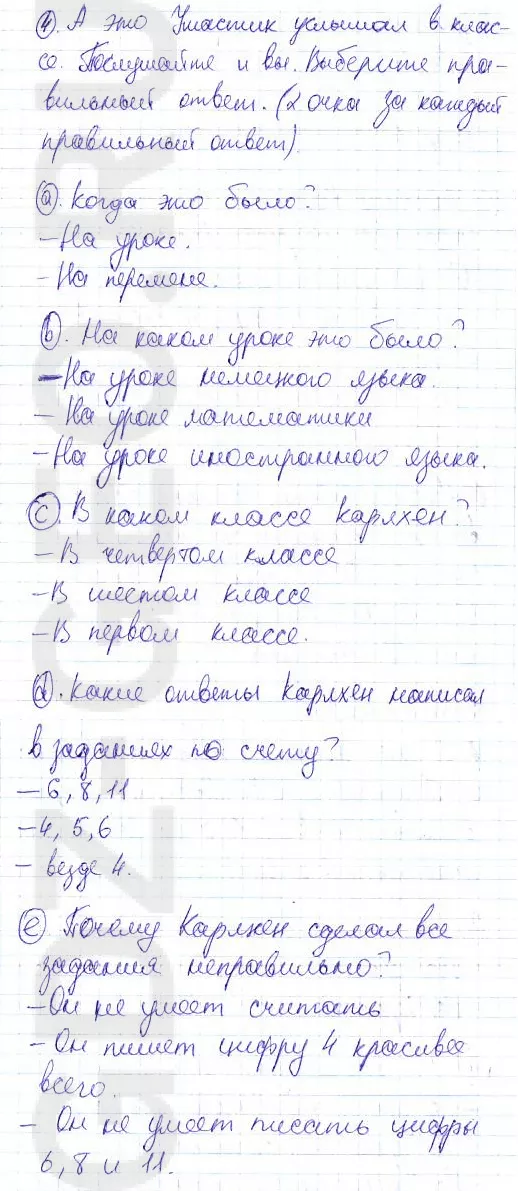 4. А это Ушастик услышал в клас-
се. Послушайте и вы. Выберите пра-
вильный ответ. (2 очка за каждый
правильный ответ)
a. Когда это было?
- На уроке.
- На перемене.
b. На каком уроке это было?
- На уроке немецкого языка.
- На уроке математики
- На уроке иностранного языка.
c. В каком классе Карлхен?
- В четвертом классе
- В шестом классе
- В первом классе.
d. Какие ответы Карлхен написал
в заданиях по счету?
- 6, 8, 11
- 4, 5, 6
- везде 4.
e. Почему Карлхен сделал все
задания неправильно?
- Он не умеет считать
- Он пишет цифру 4 красивее
всего.
- Он не умеет писать цифры
6, 8 и 11.
GDZ-GEO.RU